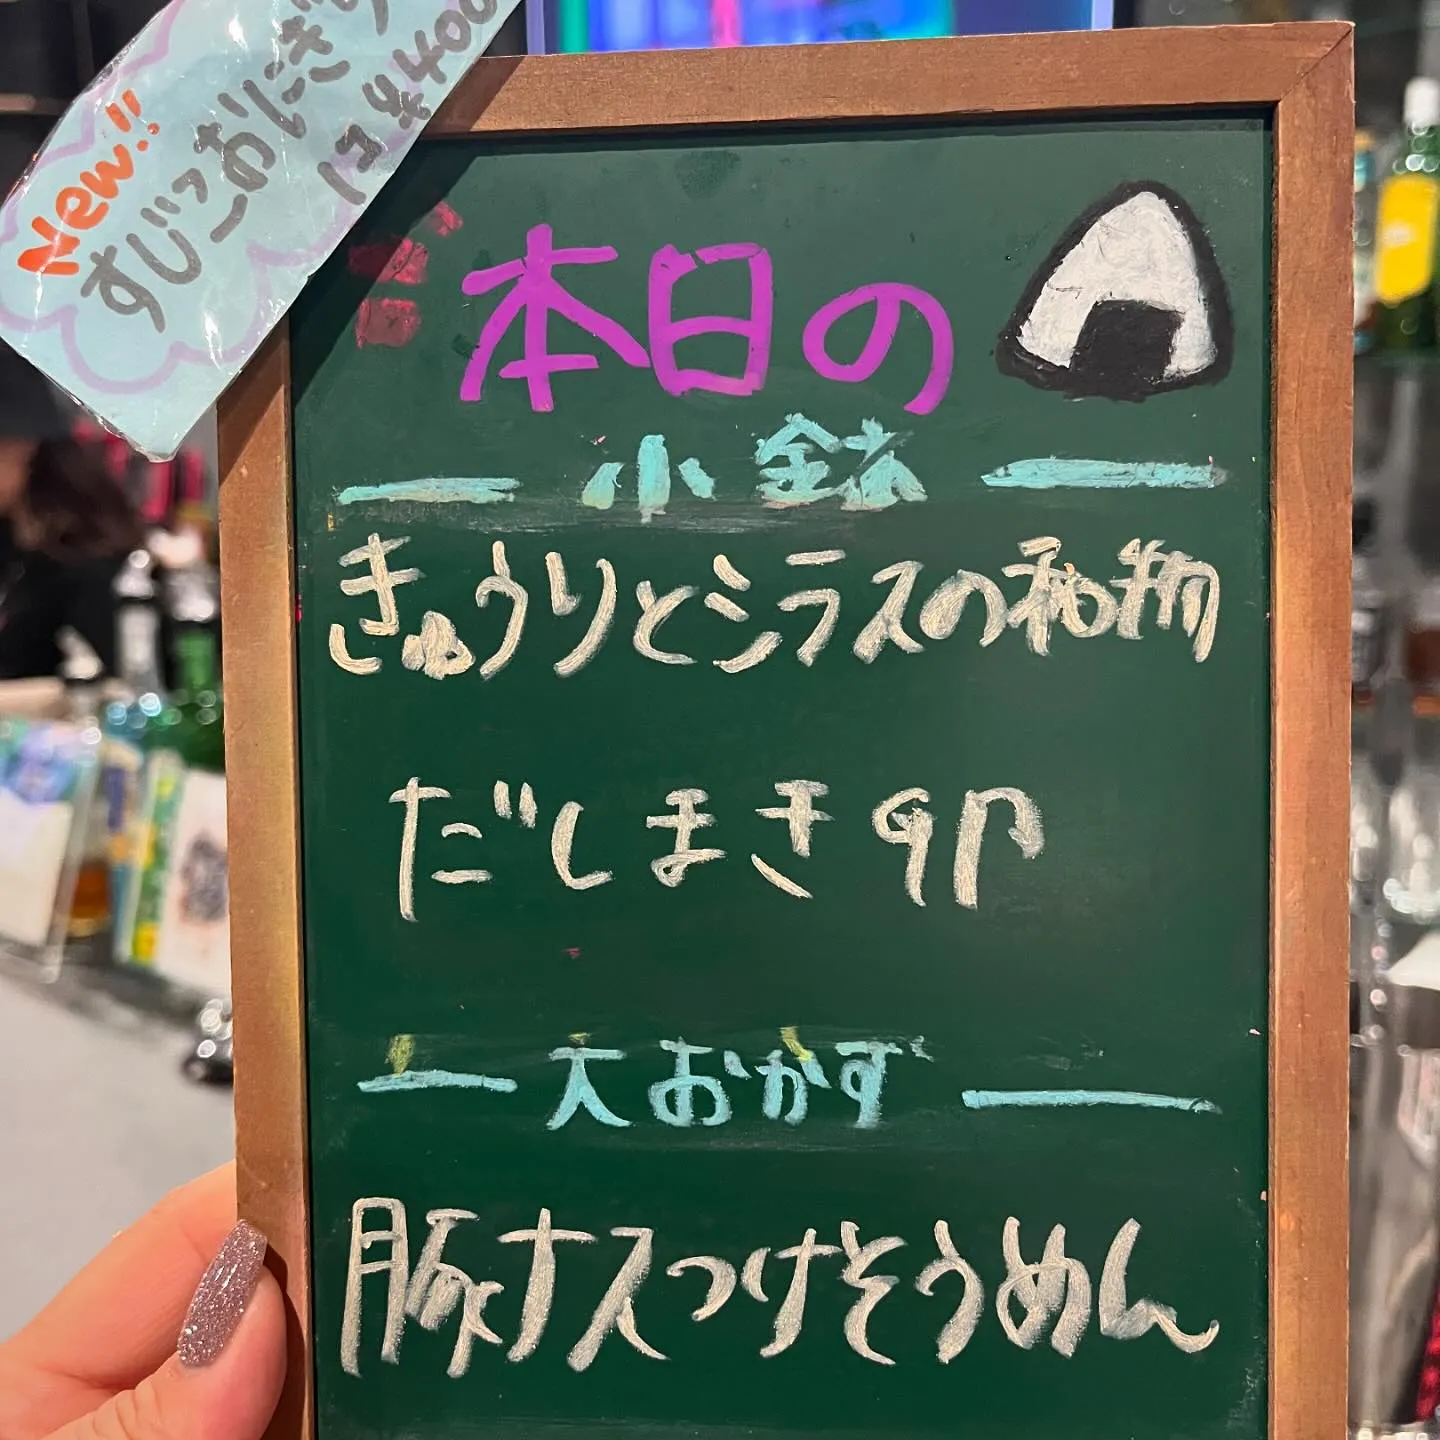 New!!
すじっこおにぎり
1コ ¥400
本日の
小鉢
きゅうりとシラスの和物
だしまき卵
大おかず
豚ナスつけそうめん